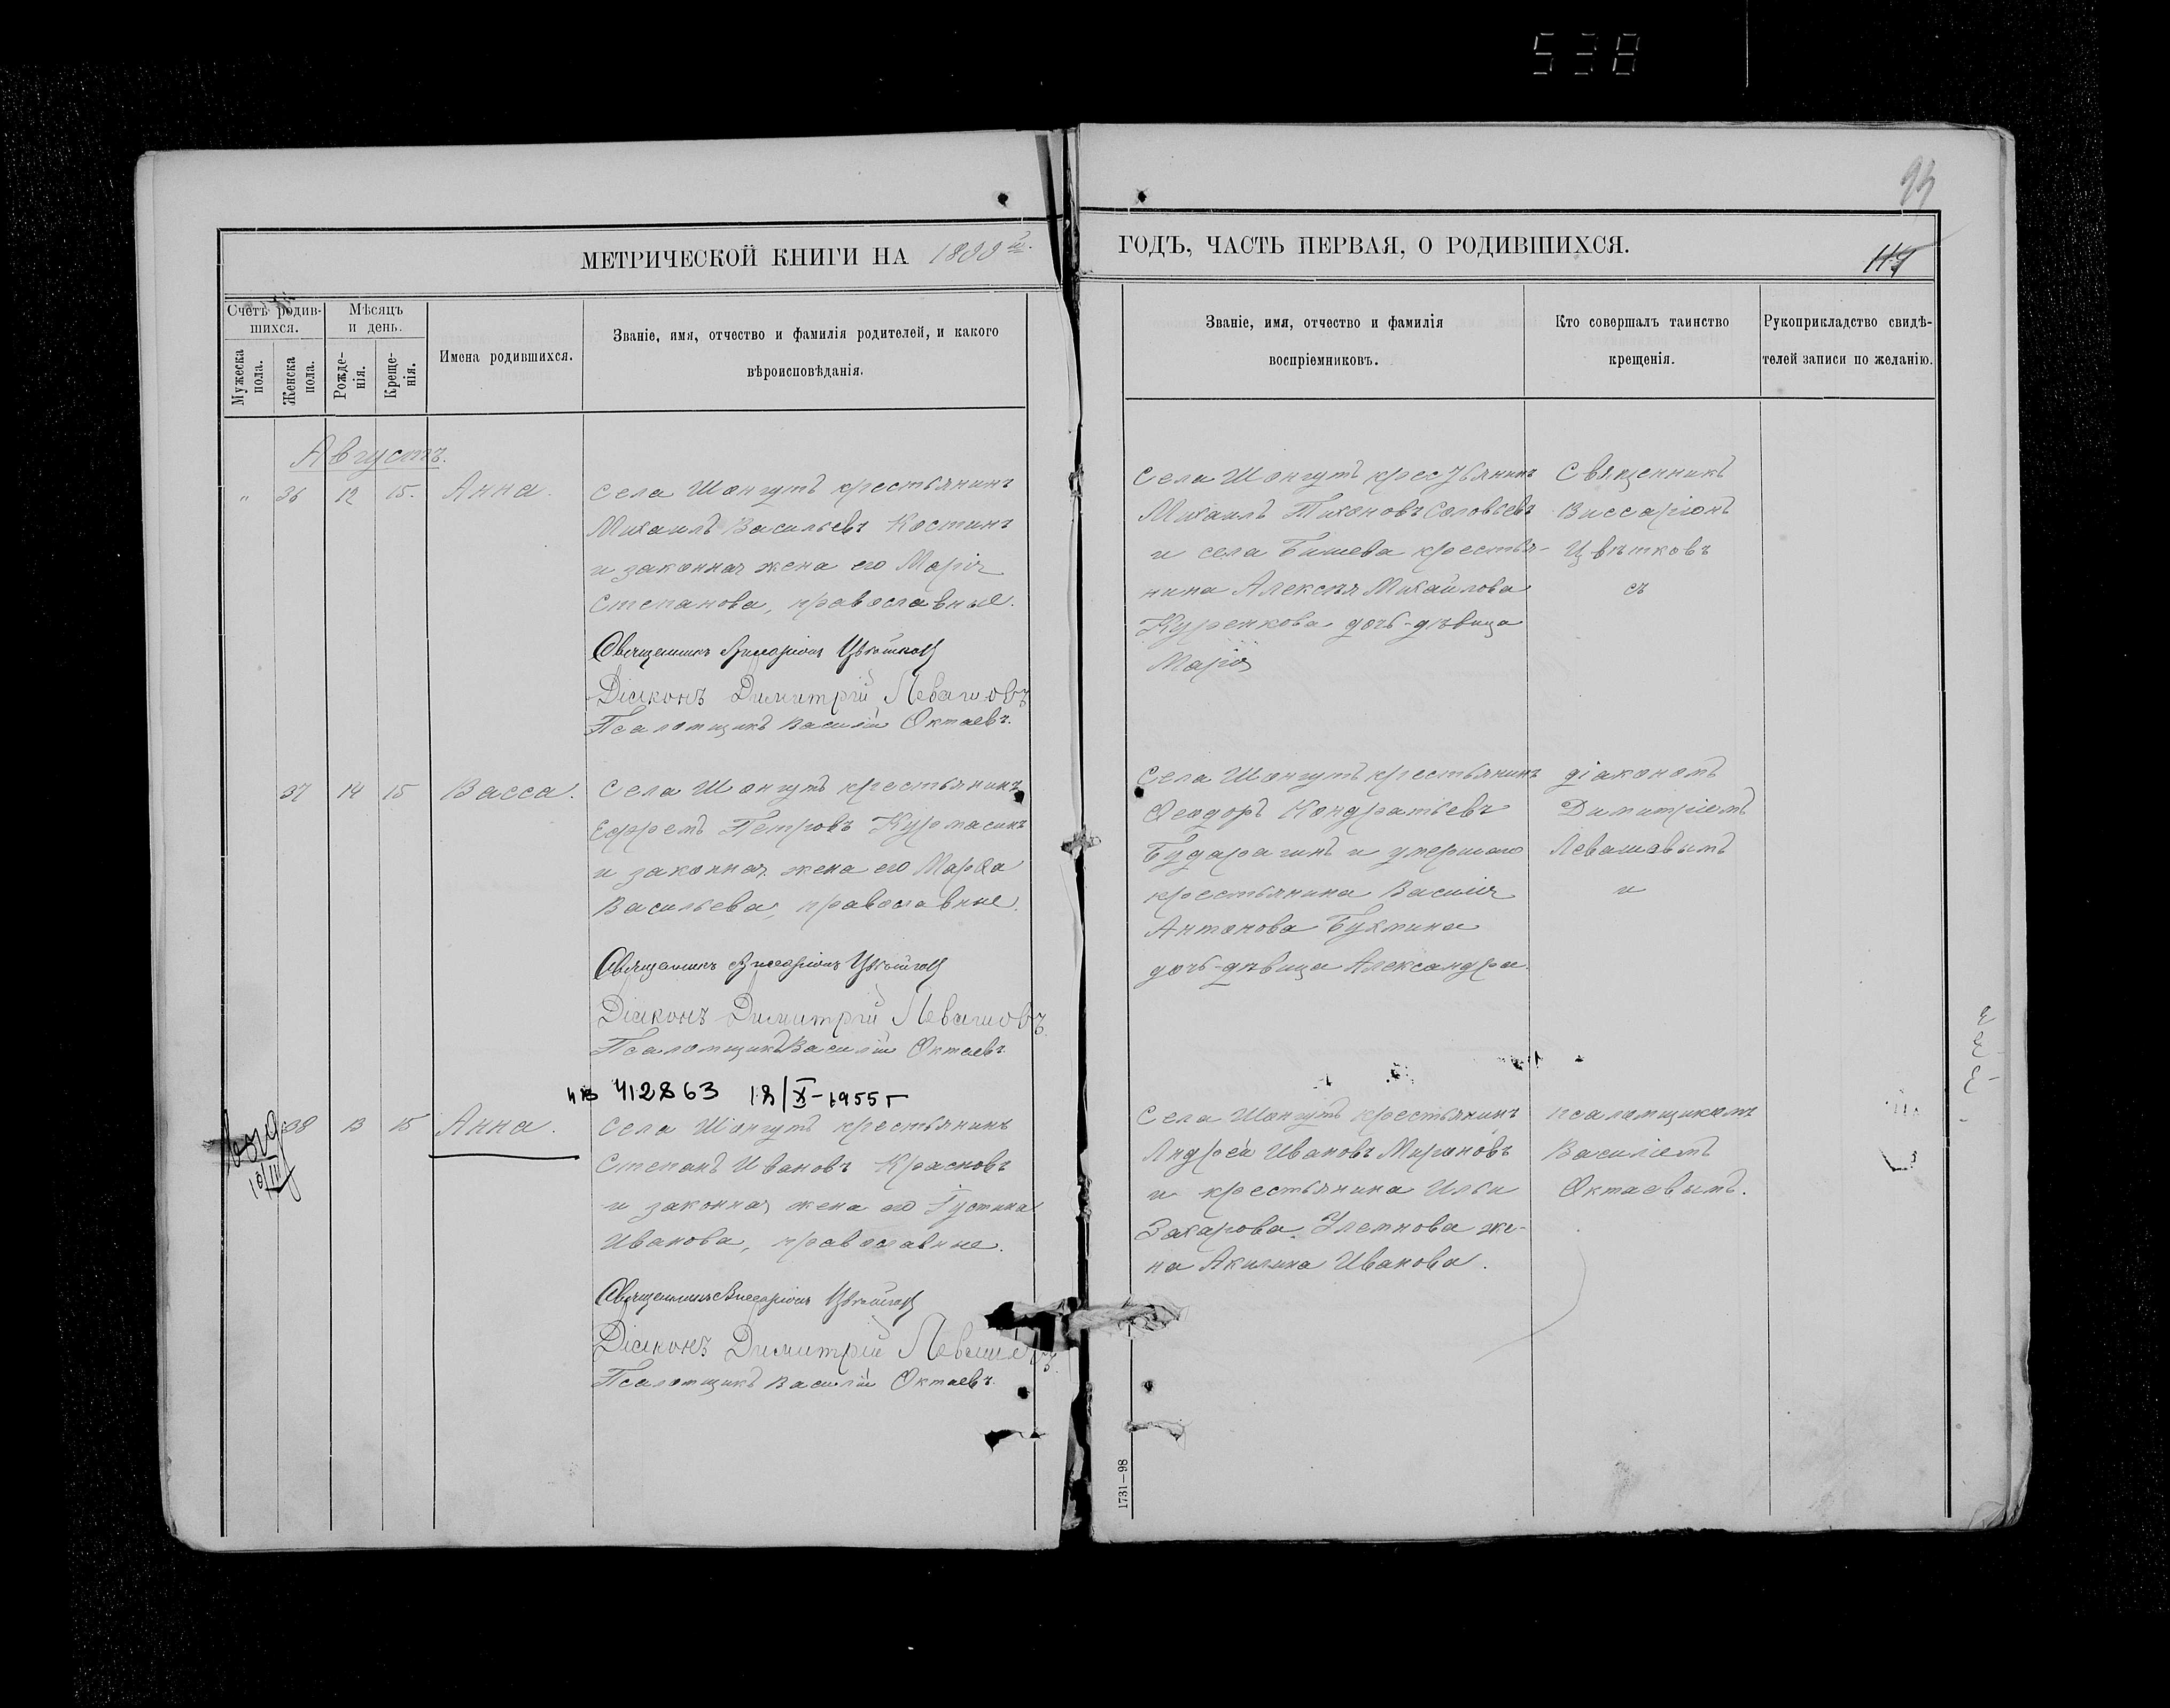 538
93
МЕТРИЧЕСКОЙ КНИГИ НА 1899й.
ГОДЪ, ЧАСТЬ ПЕРВАЯ, О РОДИВШИХСЯ.
Счетъ родив-
шихся.
Мужеска пола.
Женска пола.
Мѣсяцъ
и день.
Рожде-
нія.
Креще-
нія.
Имена родившихся.
Званіе, имя, отчество и фамилія родителей, и какого
вѣроисповѣданія.
Званіе, имя, отчество и фамилія
воспріемниковъ.
Кто совершалъ таинство
крещенія.
Рукоприкладство свидѣ-
телей записи по желанію.
Августъ.
" 36 12 15. Анна.
Села Шонгутъ крестьянинъ
Михаилъ Васильевъ Костинъ
и законная жена его Марія
Степанова, православные.
Священникъ Виссаріонъ Цвѣтковъ
Діаконъ Димитрій Левашовъ
Псаломщикъ Василій Октаевъ.
Села Шонгутъ крестьянинъ
Михаилъ Тихоновъ Соловьевъ
и села Бишева крестья-
нина Алексѣя Михайлова
Куренкова дочь-дѣвица
Марія
Священникъ
Виссаріонъ
Цвѣтковъ
съ
37 14 15 Васса.
Села Шонгутъ крестьянинъ
Ефремъ Петровъ Курмасинъ
и законная жена его Марѳа
Васильева, православные.
Священникъ Виссаріонъ Цвѣтковъ
Діаконъ Димитрій Левашовъ
Псаломщикъ Василій Октаевъ
Села Шонгутъ крестьянинъ
Ѳеодоръ Кондратьевъ
Бударагинъ и умершаго
крестьянина Василія
Антонова Бухмина
дочь-дѣвица Александра.
діакономъ
Димитріемъ
Левашовымъ
и
412863 18/X-1955г
38 13 15 Анна.
Села Шонгутъ крестьянинъ
Степанъ Ивановъ Красновъ
и законная жена его Іустина
Иванова, православные.
Священникъ Виссаріонъ Цвѣтковъ
Діаконъ Димитрій Левашовъ.
Псаломщикъ Василій Октаевъ.
Села Шонгутъ крестьянинъ
Андрей Ивановъ Мироновъ
и крестьянина Ильи
Захарова Улемнова же-
на Акилина Иванова.
псаломщикомъ
Василіемъ
Октаевымъ.
1731—98